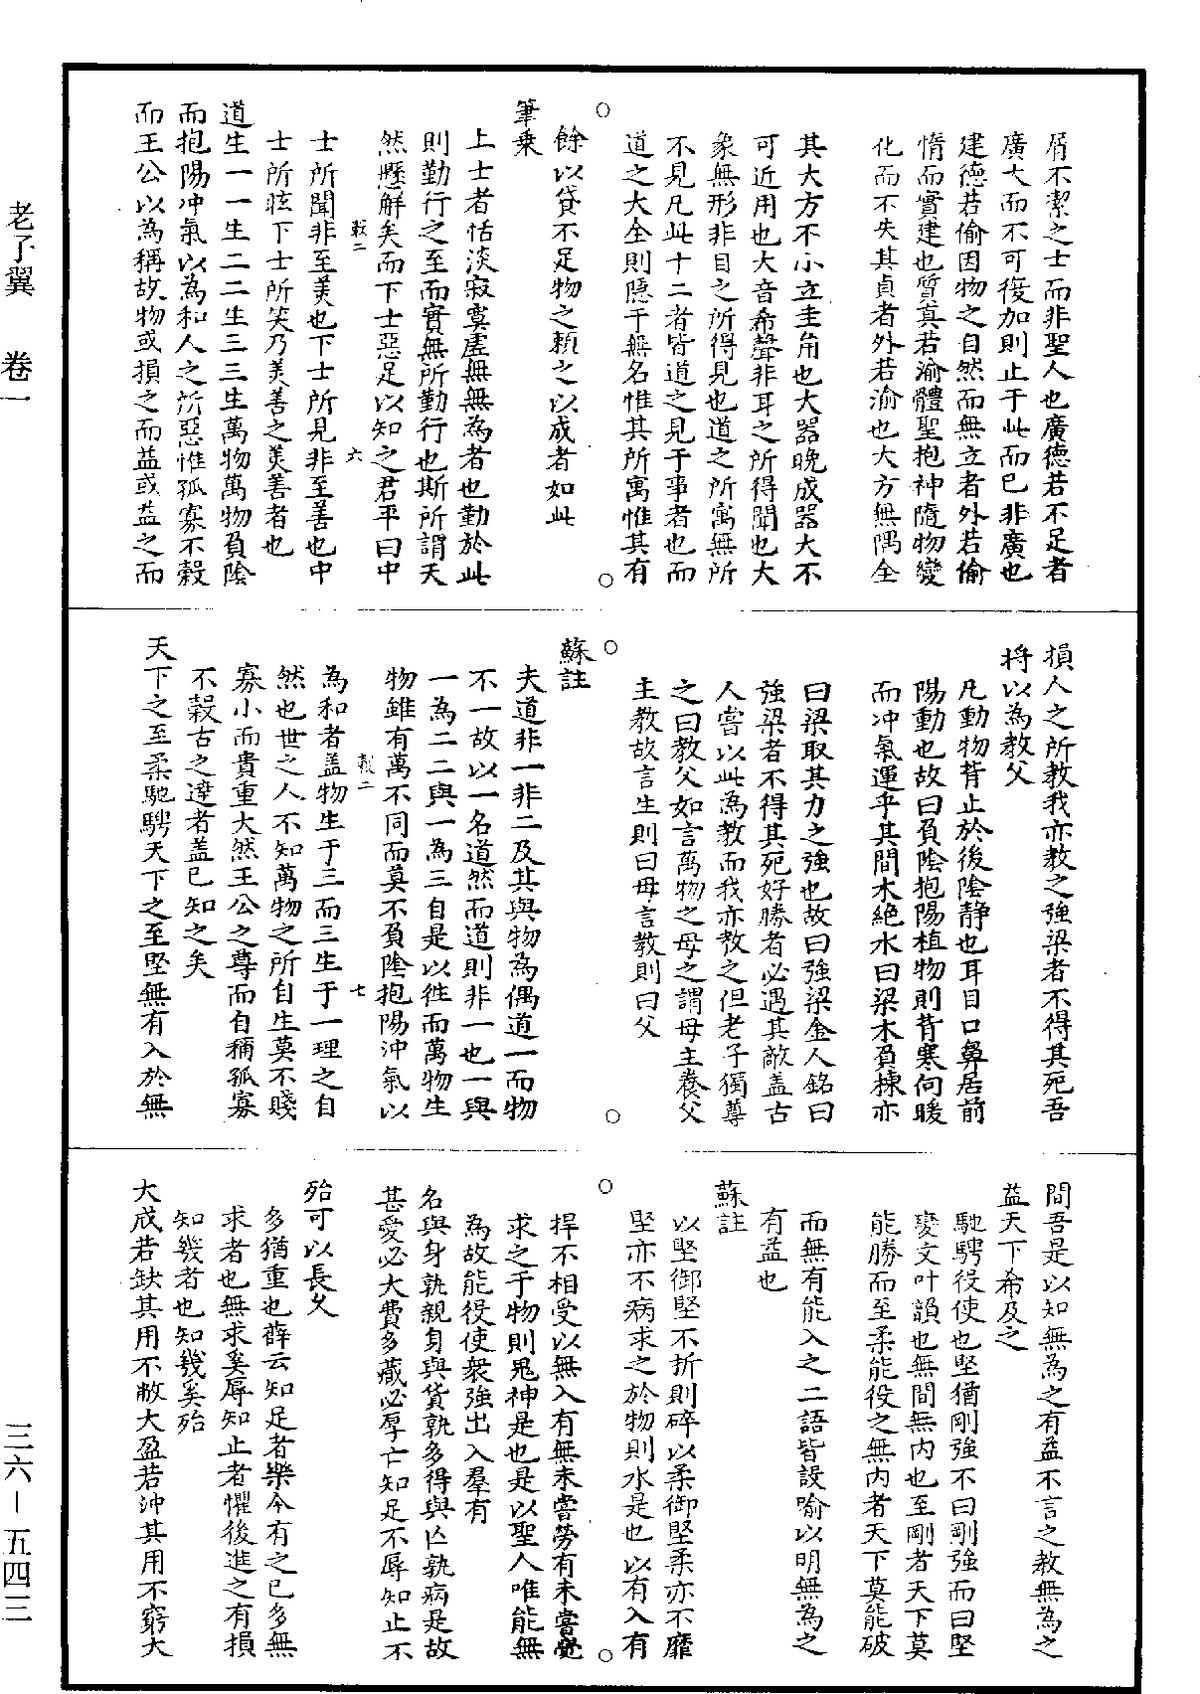 屑不潔之士而非聖人也廣德若不足者
廣大而不可復加則止于此而已非廣也
建德若偷因物之自然而無立者外若偷
惰而實建也質真若渝體聖抱神隨物變
化而不失其貞者外若渝也大方無隅全
其大方不小立圭角也大器晚成器大不
可近用也大音希聲非耳之所得聞也大
象無形非目之所得見也道之所寓無所
不見凡此十二者皆道之見于事者也而
道之大全則隱于無名惟其所寓惟其有
餘以貸不足物之賴之以成者如此
筆乗
上士者恬淡寂寞虛無無為者也勤於此
則勤行之至而實無所勤行也斯所謂天
然懸解矣而下士惡足以知之君平曰中
士所聞非至美也下士所見非至善也中
士所眩下士所笑乃美善之美善者也
道生一一生二二生三三生萬物萬物負陰
而抱陽冲氣以為和人之所惡惟孤寡不榖
而王公以為稱故物或損之而益或益之而
損人之所教我亦教之強梁者不得其死吾
將以為教父
凡動物背止於後陰靜也耳目口鼻居前
陽動也故曰負陰抱陽植物則背寒向暖
而冲氣運乎其間木絕水曰梁木負棟亦
曰梁取其力之強也故曰強梁金人銘曰
強梁者不得其死好勝者必遇其敵盖古
人嘗以此為教而我亦教之但老子獨尊
之曰教父如言萬物之母之謂母主養父
主教故言生則曰母言教則曰父
蘇註
夫道非一非二及其與物為偶道一而物
不一故以一名道然而道則非一也一與
一為二二與一為三自是以徃而萬物生
物雖有萬不同而莫不負陰抱陽沖氣以
為和者盖物生于三而三生于一理之自
然也世之人不知萬物之所自生莫不賤
寡小而貴重大然王公之尊而自稱孤寡
不榖古之達者盖已知之矣
天下之至柔馳騁天下之至堅無有入於無
間吾是以知無為之有益不言之教無為之
益天下希及之
馳騁役使也堅猶剛強不曰剛強而曰堅
變文叶韻也無間無內也至剛者天下莫
能勝而至柔能役之無內者天下莫能破
而無有能入之二語皆設喻以明無為之
有益也
蘇註
以堅御堅不折則碎以柔御堅柔亦不靡
堅亦不病求之於物則水是也以有入有
捍不相受以無入有無未嘗勞有未嘗覺
求之于物則鬼神是也是以聖人唯能無
為故能役使衆強出入羣有
名與身孰親身與貨孰多得與亡孰病是故
甚愛必大費多藏必厚亡知足不辱知止不
殆可以長久
多猶重也薛云知足者樂今有之已多無
求者也無求奚辱知止者懼後進之有損
知幾者也知幾奚殆
大成若缺其用不敝大盈若沖其用不窮大
老子翼 卷一
三六－五四三